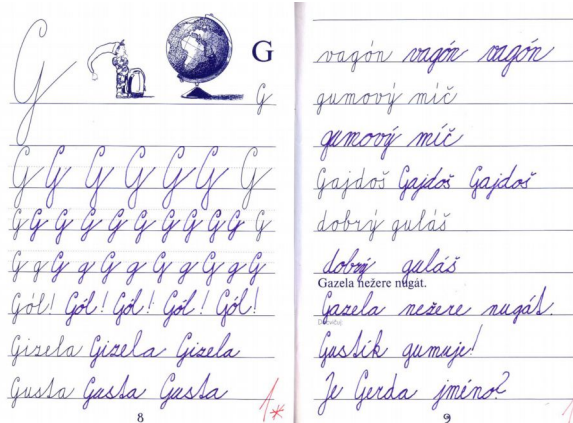 G
G
G
G G G G G G G
G G G G G G G G G G G
G g G g G g G g G g G
Gól! Gól! Gól! Gól! Gól!
Gizela Gizela Gizela
Gusta Gusta Gusta
1*
8
vagón vagón vagón
gumový míč
gumový míč
Gajdoš Gajdoš Gajdoš
dobrý guláš
dobrý guláš
Gazela nežere nugát.
Gazela nežere nugát.
Gustík gumuje!
Je Gerda jméno?
9